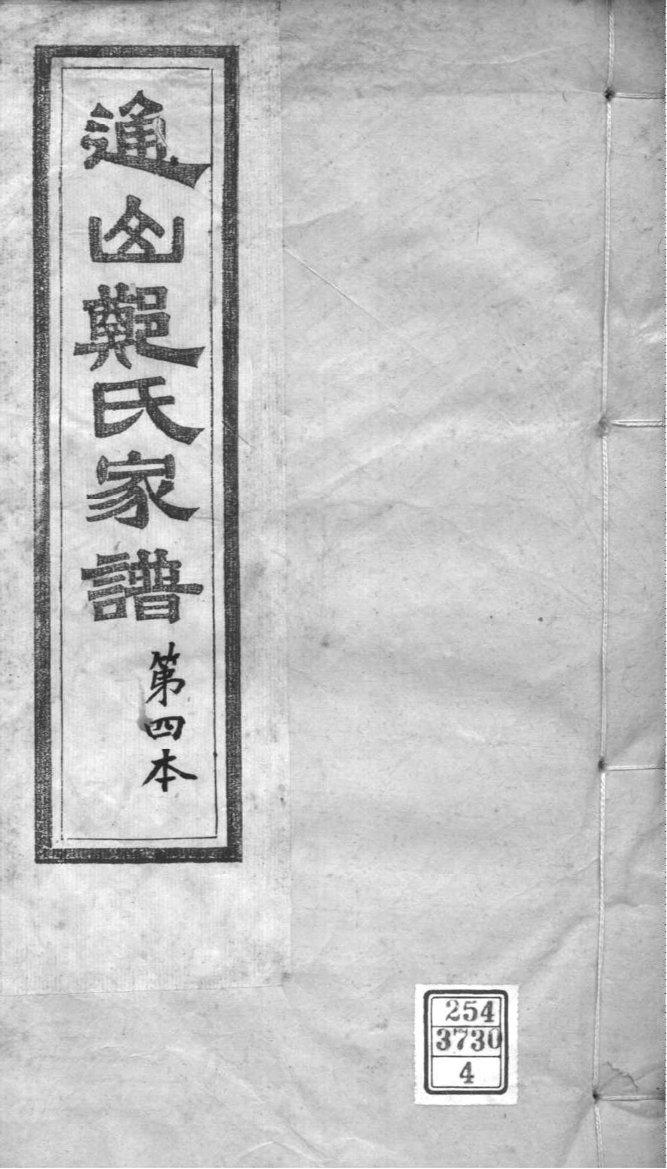 通山鄭氏家譜
第四本
254
3730
4